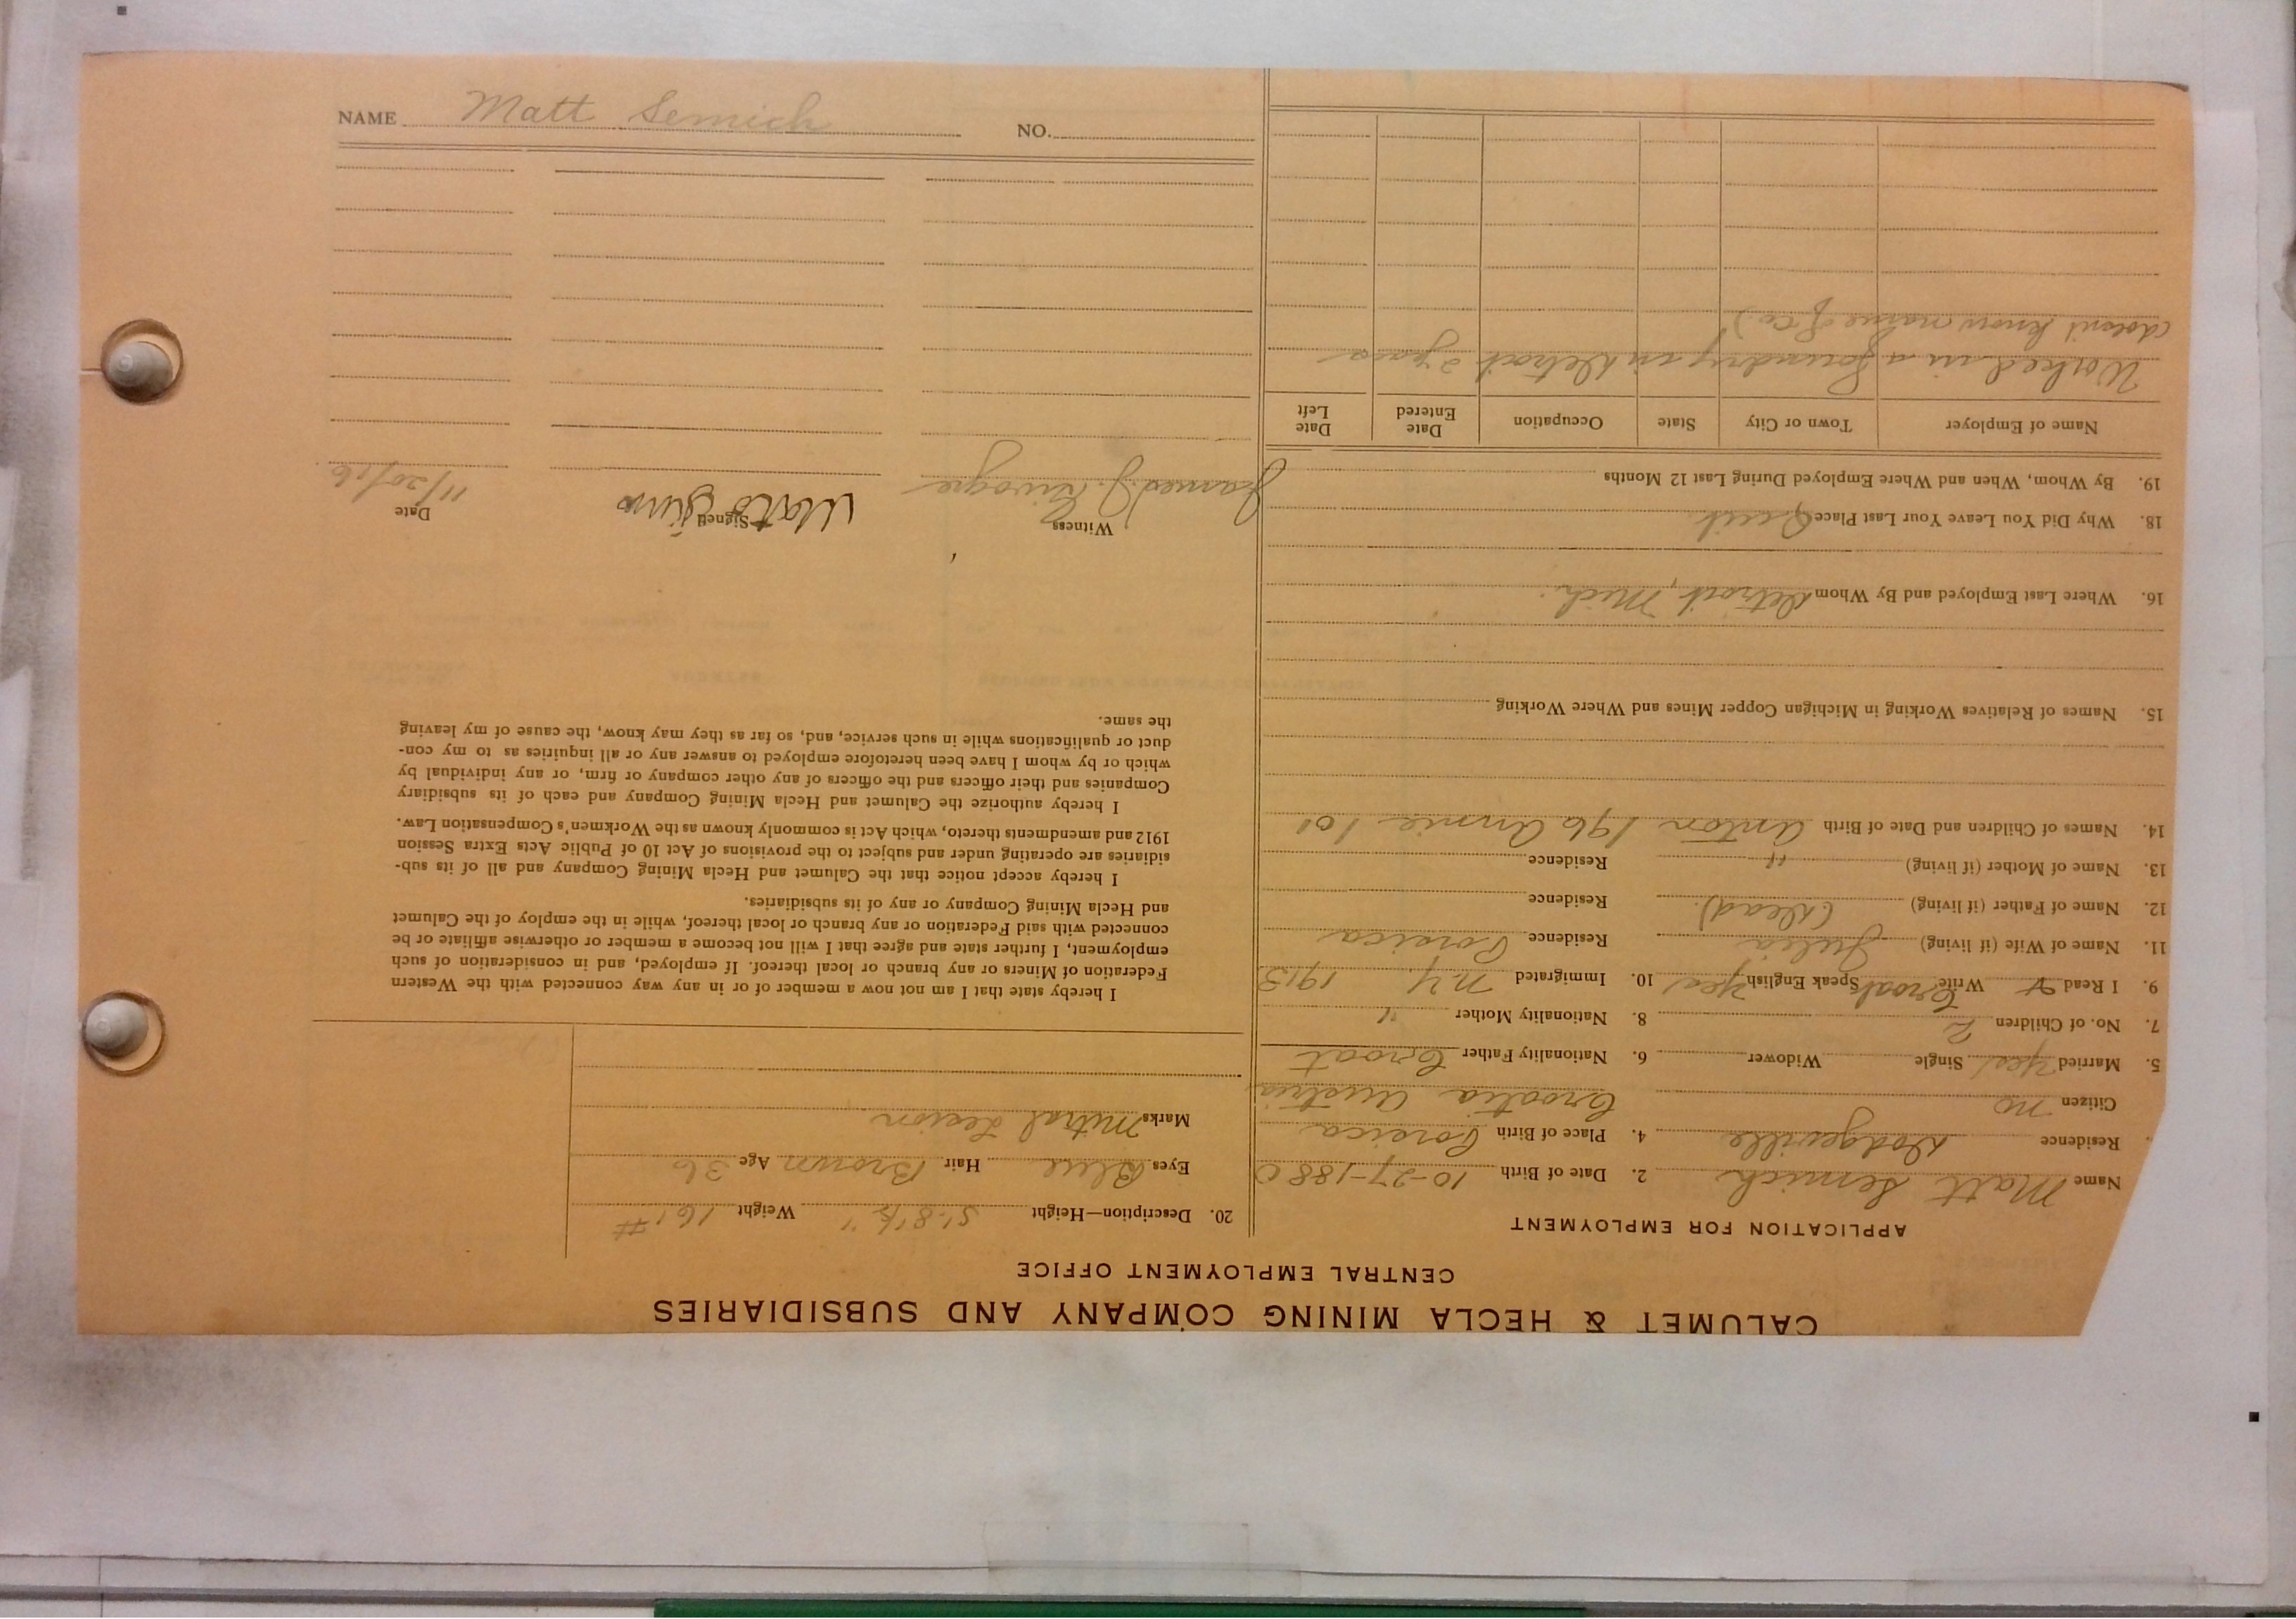 CALUMET & HECLA MINING COMPANY AND SUBSIDIARIES
CENTRAL EMPLOYMENT OFFICE
APPLICATION FOR EMPLOYMENT
Name Matt Semich 2. Date of Birth 10-27-1880
Residence Dodgeville 4. Place of Birth
Citizen no Croatia Austria
5. Married Yes Single Widower 6. Nationality Father Croat
7. No. of Children 2 8. Nationality Mother "
9. I Read & Write Croat Speak English Yes 10. Immigrated N.Y. 1913
11. Name of Wife (if living) Julia Residence
12. Name of Father (if living) (Dead) Residence
13. Name of Mother (if living) " Residence
14. Names of Children and Date of Birth Anton Annie
15. Names of Relatives Working in Michigan Copper Mines and Where Working
16. Where Last Employed and By Whom Detroit, Mich.
18. Why Did You Leave Your Last Place Quit
19. By Whom, When and Where Employed During Last 12 Months
Name of Employer Town or City State Occupation Date Entered Date Left
Worked in a foundry in Detroit 2 years
(doesn't know name of co.)
20. Description—Height 5'.8½" Weight 161#
Eyes Blue Hair Brown Age 36
Marks Mitral Lesion
I hereby state that I am not now a member of or in any way connected with the Western
Federation of Miners or any branch or local thereof. If employed, and in consideration of such
employment, I further state and agree that I will not become a member or otherwise affiliate or be
connected with said Federation or any branch or local thereof, while in the employ of the Calumet
and Hecla Mining Company or any of its subsidiaries.
I hereby accept notice that the Calumet and Hecla Mining Company and all of its sub-
sidiaries are operating under and subject to the provisions of Act 10 of Public Acts Extra Session
1912 and amendments thereto, which Act is commonly known as the Workmen's Compensation Law.
I hereby authorize the Calumet and Hecla Mining Company and each of its subsidiary
Companies and their officers and the officers of any other company or firm, or any individual by
which or by whom I have been heretofore employed to answer any or all inquiries as to my con-
duct or qualifications while in such service, and, so far as they may know, the cause of my leaving
the same.
Witness Signed Date
James J. 11/20/16
NAME Matt Semich NO.